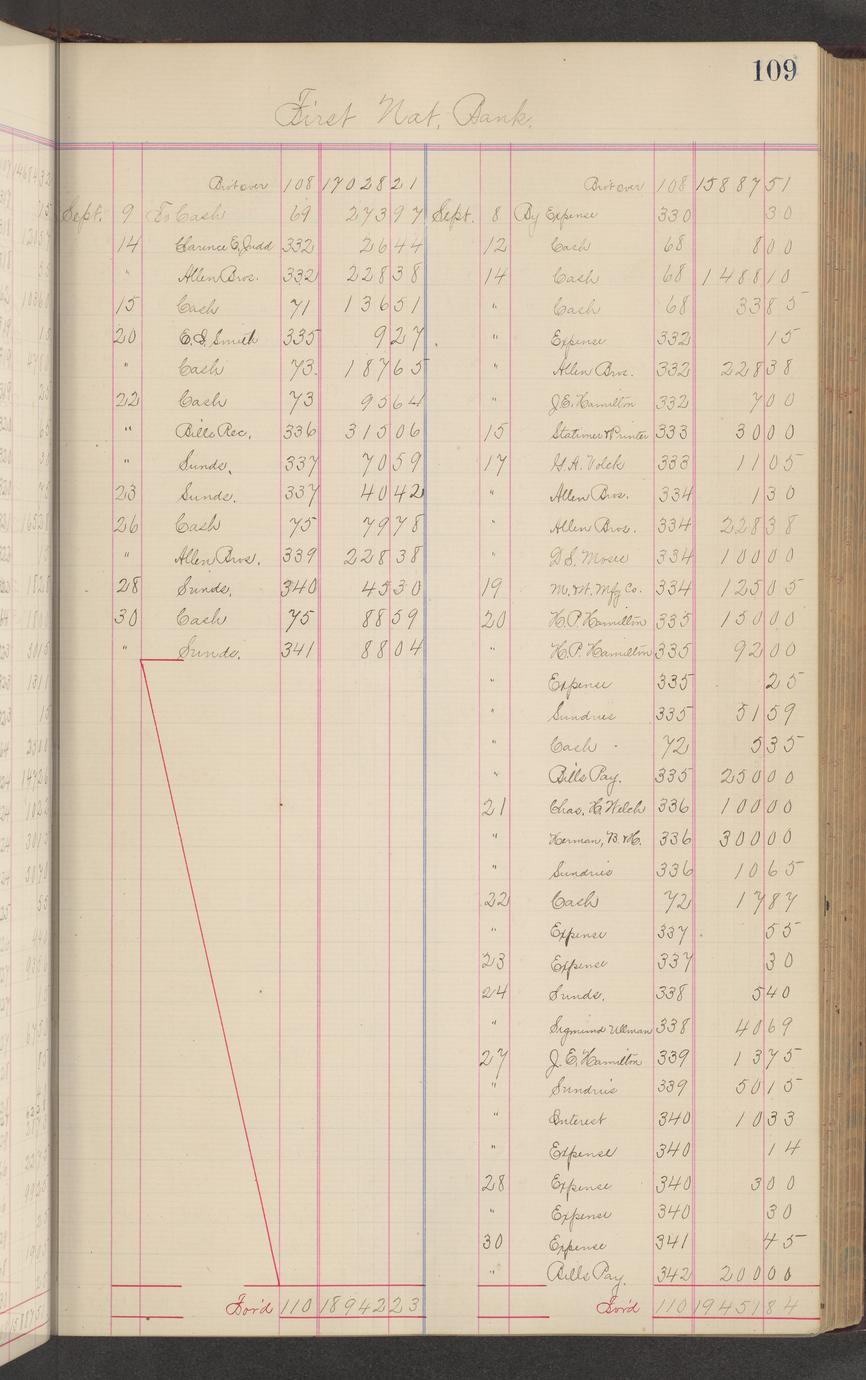 109
First Nat. Bank.
Bro't over 108 17028 21
Sept. 9 To Cash 69 273 97
14 Clarence E. Judd 332 26 44
" Allen Bros. 332 228 38
15 Cash 71 136 51
20 E.E. Smith 335 9 27
" Cash 73 187 65
22 Cash 73 95 64
" Bills Rec. 336 315 06
" Sunds. 337 70 59
23 Sunds. 337 40 42
26 Cash 75 79 78
" Allen Bros. 339 228 38
28 Sunds. 340 45 30
30 Cash 75 88 59
" Sunds. 341 88 04
For'd 110 18942 23
Bro't over 108 15887 51
Sept. 8 By Expense 330 30
12 Cash 68 8 00
14 Cash 68 1488 10
" Cash 68 33 85
" Expense 332 15
" Allen Bros. 332 228 38
" J.E. Hamilton 332 7 00
15 Stationer & Printer 333 30 00
17 H.A. Volck 333 11 05
" Allen Bros. 334 1 30
" Allen Bros. 334 228 38
" D.S. Moses 334 100 00
19 M. & H. Mfg Co. 334 125 05
20 H.P. Hamilton 335 150 00
" H.P. Hamilton 335 92 00
" Expense 335 25
" Sundries 335 51 59
" Cash 72 5 35
" Bills Pay. 335 250 00
21 Chas. H. Welch 336 100 00
" Herman, B. & H. 336 300 00
" Sundries 336 10 65
22 Cash 72 17 87
" Expense 337 55
23 Expense 337 30
24 Sunds. 338 5 40
" Sigmund Ullman 338 40 69
27 J.E. Hamilton 339 13 75
" Sundries 339 50 15
" Interest 340 10 33
" Expense 340 14
28 Expense 340 3 00
" Expense 340 30
30 Expense 341 45
" Bills Pay. 342 200 00
For'd 110 19451 84